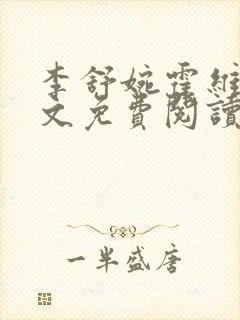 李舒婉霍維
文免費閱讀
一半盛唐